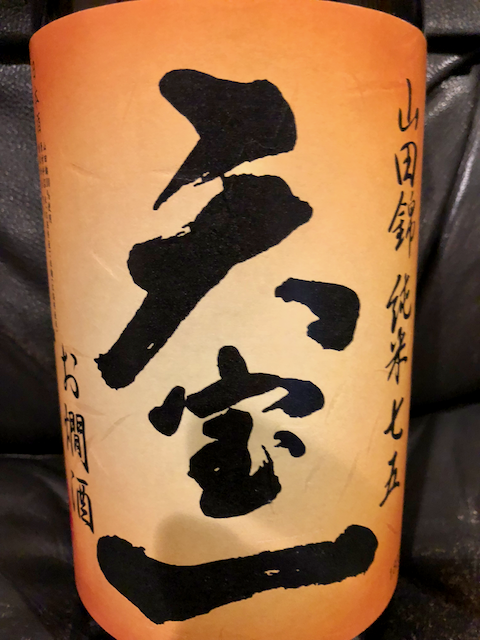 山田錦 純米 七五
天宝一
お燗酒